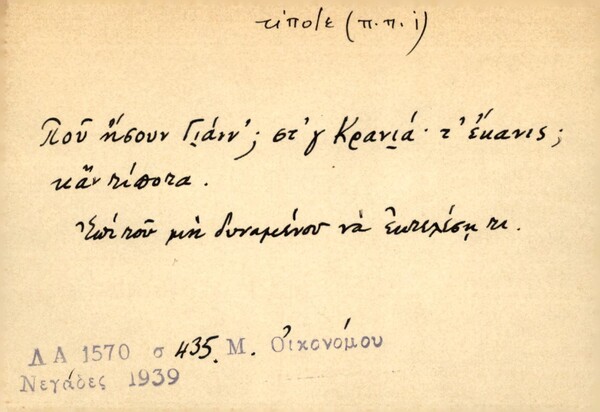 τίποτε (π.π.ι)
Ποῦ ἤσουν Γιάνν'; στ' γ Κρανιά· τ' ἔκανις;
κἂν τίποτα.
Ἐπὶ τοῦ μὴ δυναμένου νὰ ἐκτελέσῃ τι.
ΛΑ 1570 σ 435. Μ. Οἰκονόμου
Νεγάδες 1939